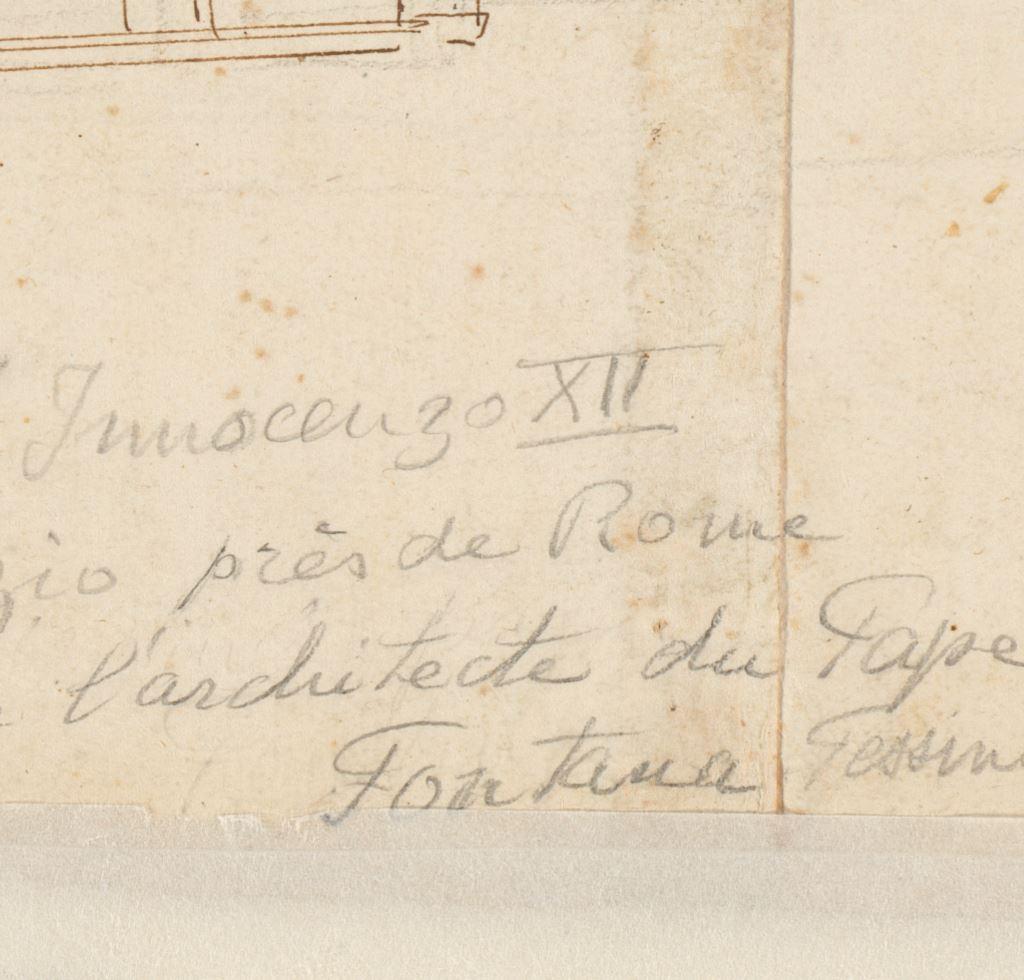 Innocenzo XII
près de Rome
l'architecte du Pape
Fontana